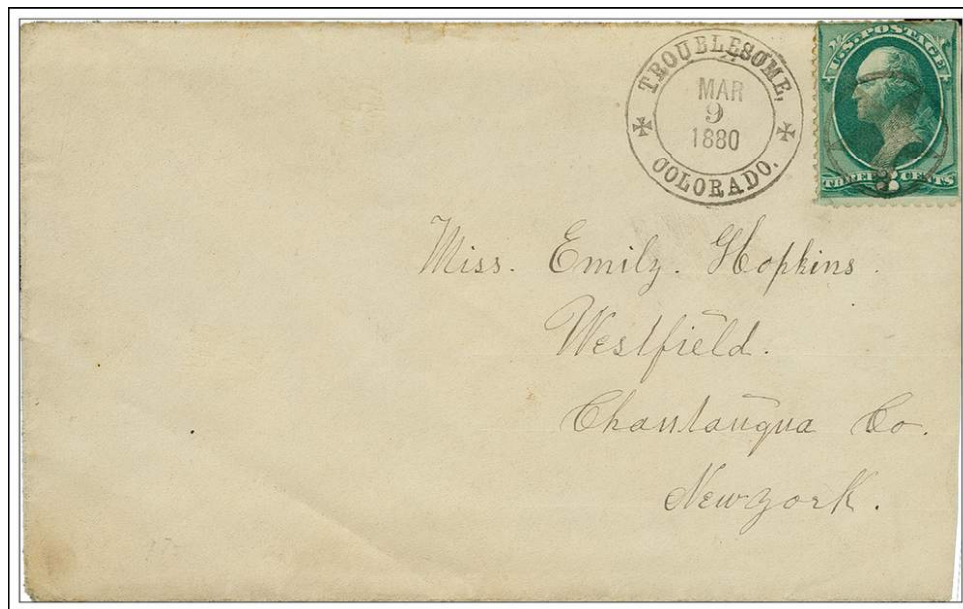 TROUBLESOME,
MAR
9
1880
COLORADO.
U.S. POSTAGE
THREE 3 CENTS
Miss. Emily. Hopkins.
Westfield.
Chautauqua Co.
New York.